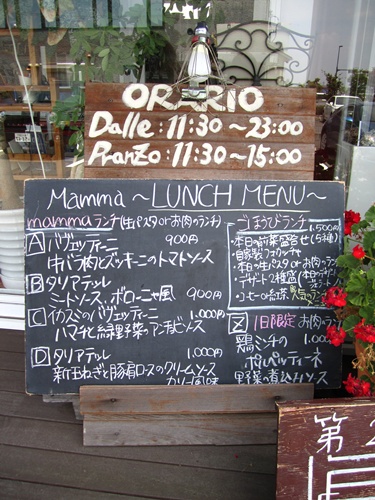 ORARIO
Dalle:11:30～23:00
Pranzo:11:30～15:00
Mamma ～LUNCH MENU～
mammaランチ(生パスタorお肉ランチ)
A バヴェッティーニ 900円
牛バラ肉とズッキーニのトマトソース
B タリアテッレ 900円
ミートソース、ボローニャ風
C イカスミのバヴェッティーニ 1.000円
ハマチと緑野菜のアンチョビソース
D タリアテッレ 1.000円
新玉ねぎと豚肩ロースのクリームソース
カレー風味
ごほうびランチ
1.500円
・本日の前菜盛合せ(5種)
・自家製フォカッチャ
・本日の生パスタorお肉ランチ
・デザート2種盛
・コーヒーor紅茶
Z 1日限定 お肉ランチ
鶏ミンチの 1.000円
ポルペッティーネ
野菜の煮込みソース
第